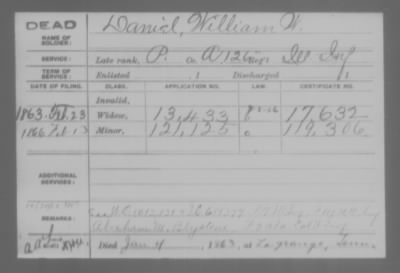 DEAD
NAME OF SOLDIER: Daniel, William W.
SERVICE: Late rank, P. Co. A 126 Reg't Ill Inf
TERM OF SERVICE: Enlisted , 1 Discharged , 1
DATE OF FILING. CLASS. APPLICATION NO. LAW. CERTIFICATE NO.
Invalid,
1863 Feb. 23 Widow, 13,433 17,632
1866 Feb 13 Minor, 121,125 119,306
ADDITIONAL SERVICES:
REMARKS:
Abraham M.
Died Jan 4, 1863, at Lagrange, Tenn.